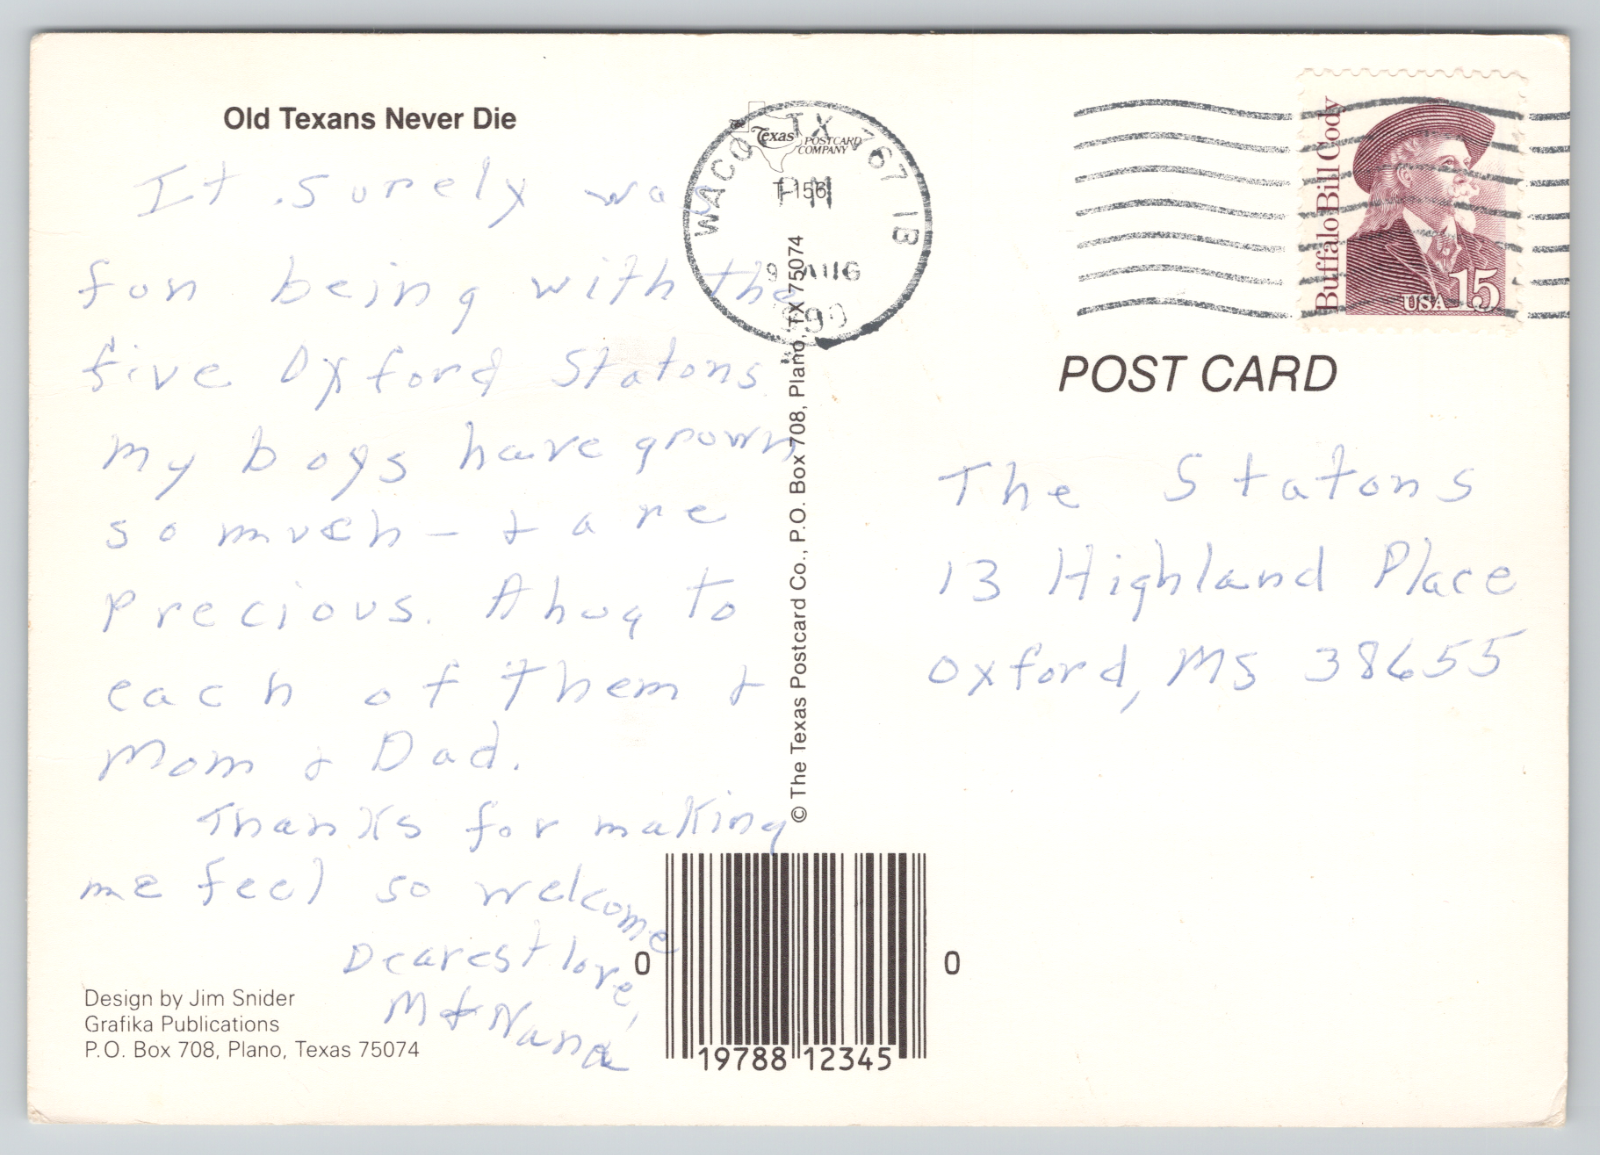 Old Texans Never Die
It surely was
fun being with the
five Oxford Statons.
My boys have grown
so much – & are
precious. A hug to
each of them &
Mom & Dad.
Thanks for making
me feel so welcome
Dearest love,
M & Nana
Design by Jim Snider
Grafika Publications
P.O. Box 708, Plano, Texas 75074
Texas POSTCARD
COMPANY
T-156
WACO TX 767 1B
PM
9 AUG
1990
© The Texas Postcard Co., P.O. Box 708, Plano, TX 75074
0 19788 12345 0
Buffalo Bill Cody
USA 15
POST CARD
The Statons
13 Highland Place
Oxford, MS 38655